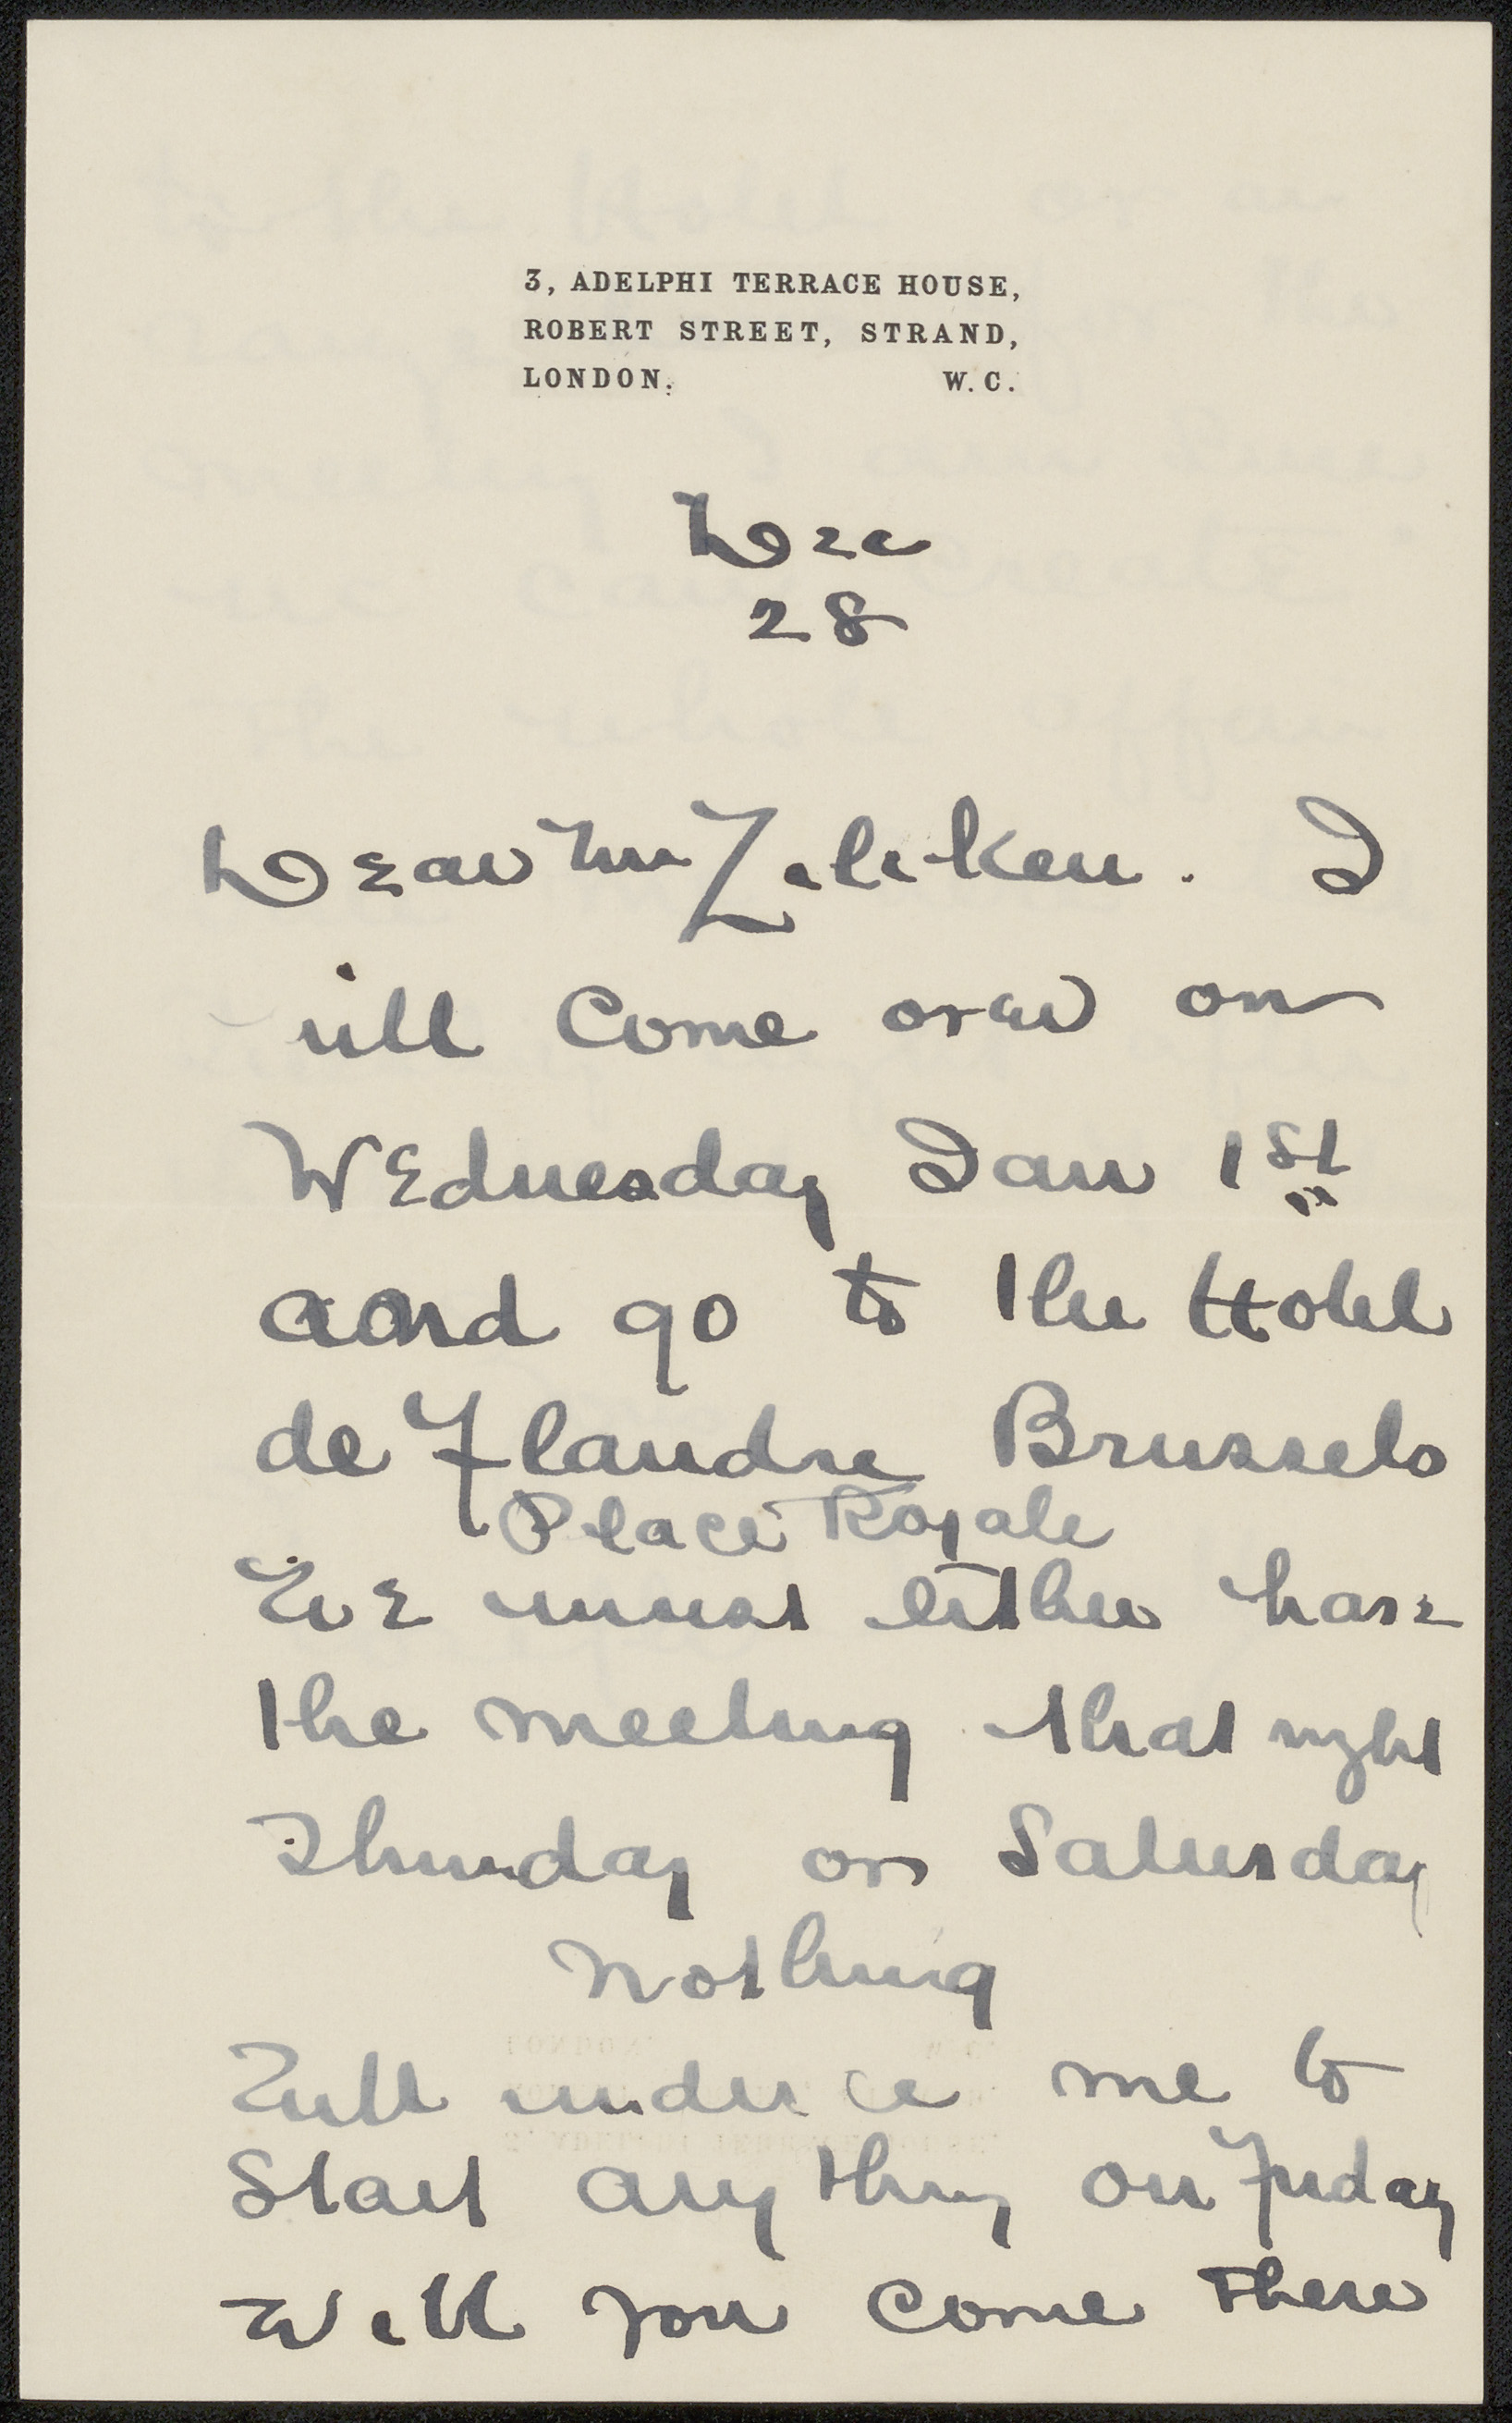 3, ADELPHI TERRACE HOUSE,
ROBERT STREET, STRAND,
LONDON. W.C.
Dec
28
Dear Mr Zilcken. I
will come over on
Wednesday Jan 1st
and go to the Hotel
de Flandre Brussels
Place Royale
We must either have
the meeting that night
Thursday or Saturday
nothing
will induce me to
start anything on Friday
Will you come there